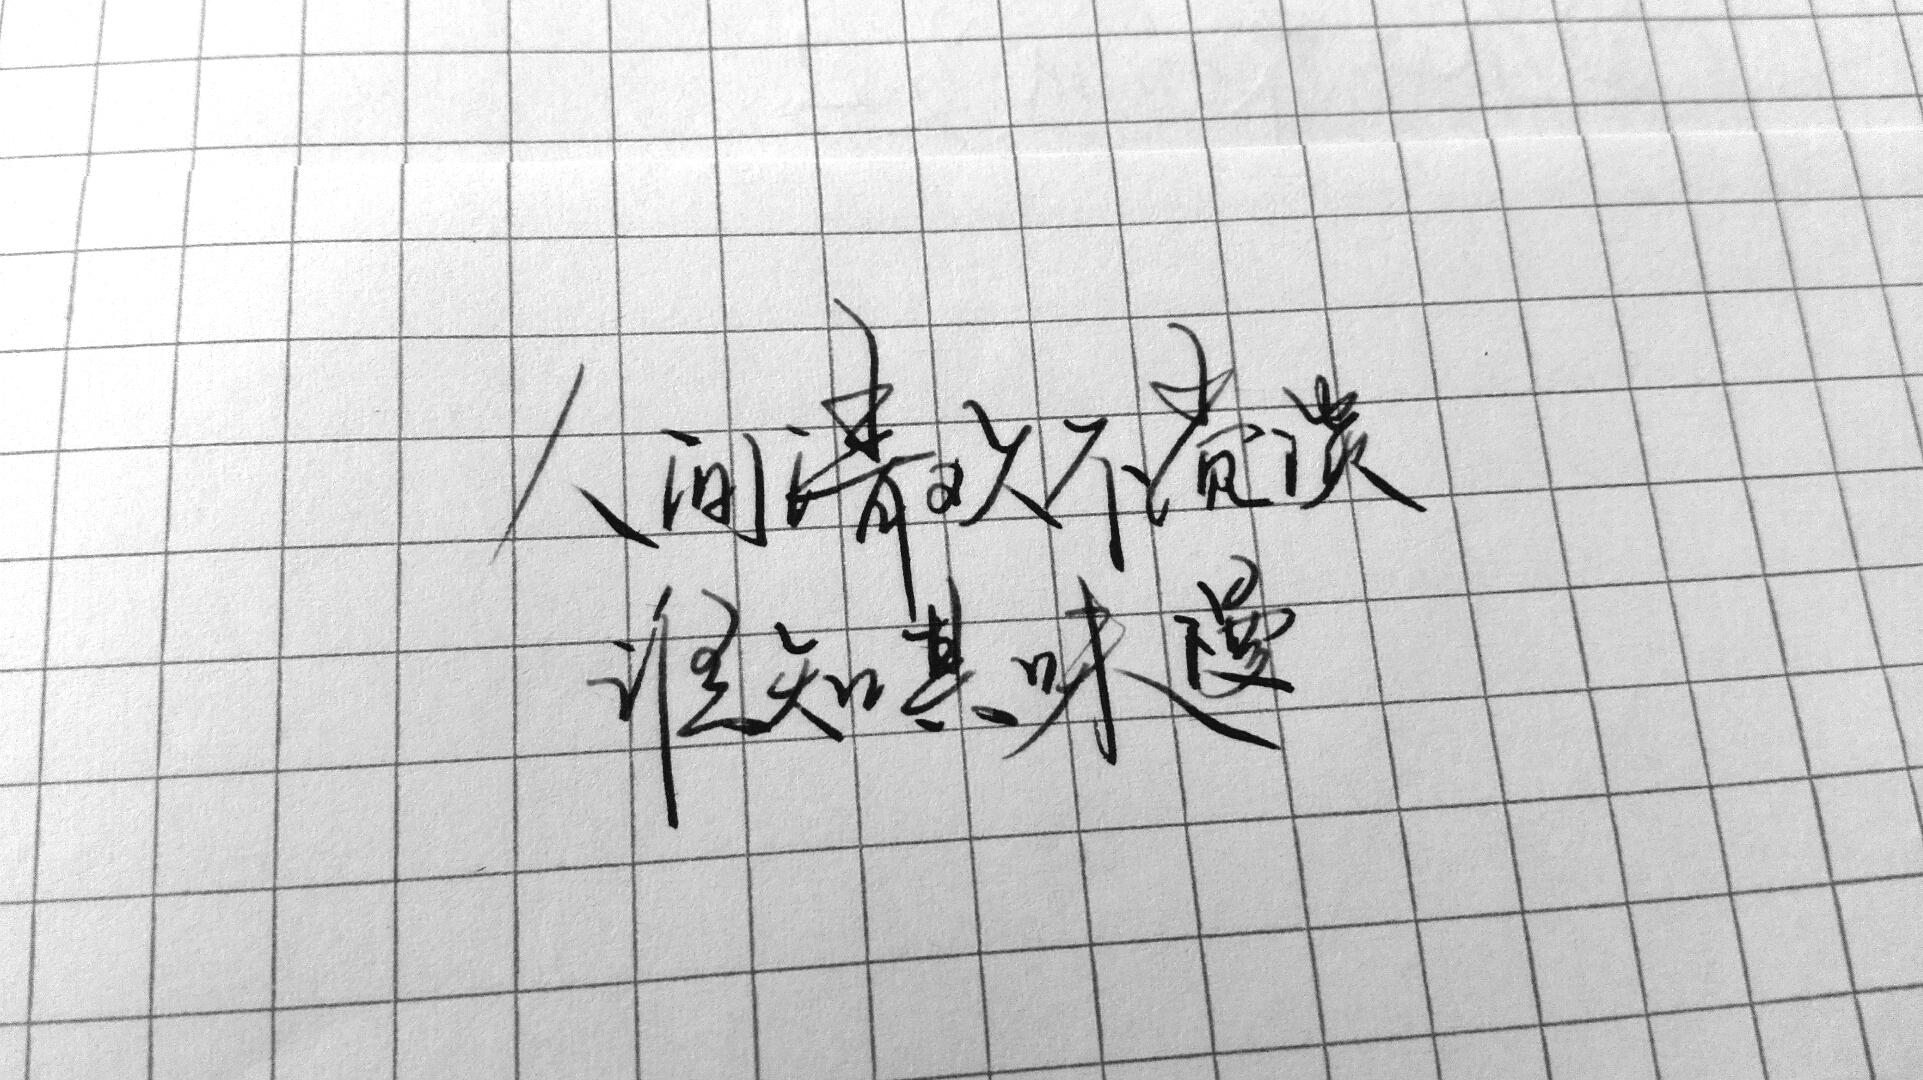 人间清欢不觉淡
谁知其味漫